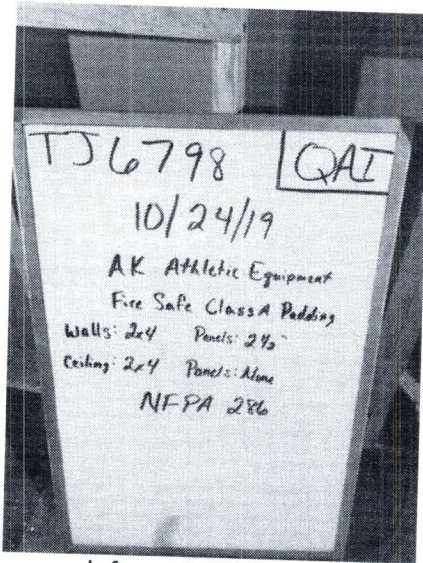 TJ6798 QAI
10/24/19
AK Athletic Equipment
Fire Safe Class A Padding
Walls: 2x4 Panels: 2½"
Ceiling: 2x4 Panels: None
NFPA 286